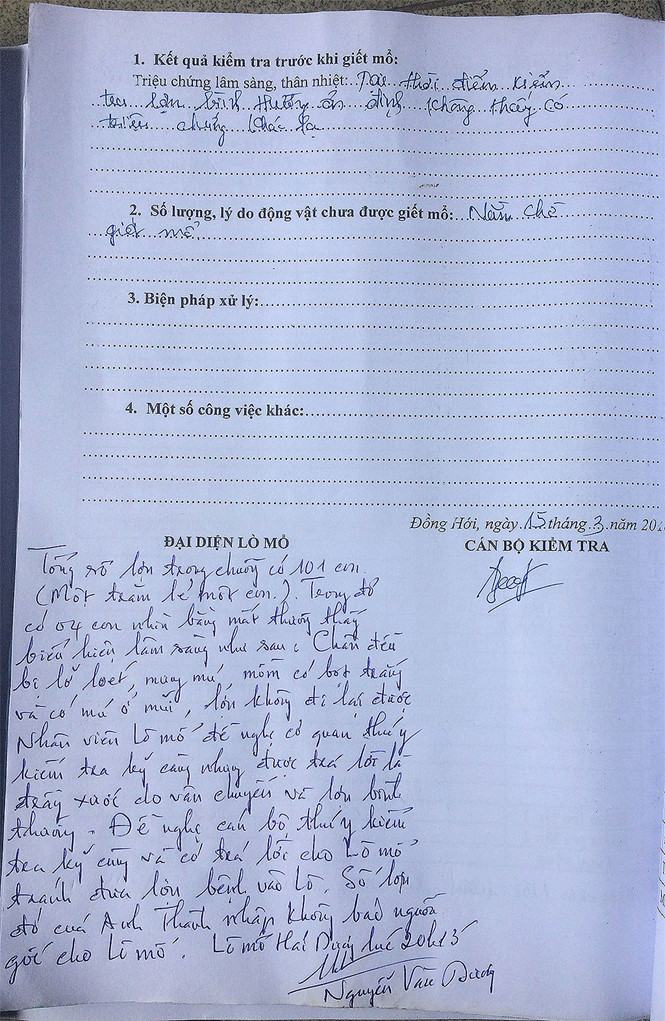 1. Kết quả kiểm tra trước khi giết mổ:
Triệu chứng lâm sàng, thân nhiệt: Tại thời điểm kiểm
tra lợn bình thường ổn định không thấy có
triệu chứng khác lạ
2. Số lượng, lý do động vật chưa được giết mổ: Nằm chờ
giết mổ.
3. Biện pháp xử lý:
4. Một số công việc khác:
Đồng Hới, ngày 15 tháng 3 năm 201
ĐẠI DIỆN LÒ MỔ
CÁN BỘ KIỂM TRA
Tổng số lợn trong chuồng có 101 con
(Một trăm lẻ một con.). Trong đó
có 04 con nhìn bằng mắt thường thấy
biểu hiện lâm sàng như sau: Chân đều
bị lở loét, mưng mủ, mồm có bọt trắng
và có mủ ở mũi, lợn không đi lại được
Nhân viên Lò mổ đề nghị cơ quan thú y
kiểm tra kỹ càng nhưng được trả lời là
trầy xước do vận chuyển và lợn bình
thường. Đề nghị cán bộ thú y kiểm
tra kỹ càng và có trả lời cho Lò mổ
tránh đưa lợn bệnh vào Lò. Số lợn
đó của Anh Thành nhập không báo nguồn
gốc cho Lò mổ. Lò mổ Hải Dương lúc 20h15
Nguyễn Văn Dương